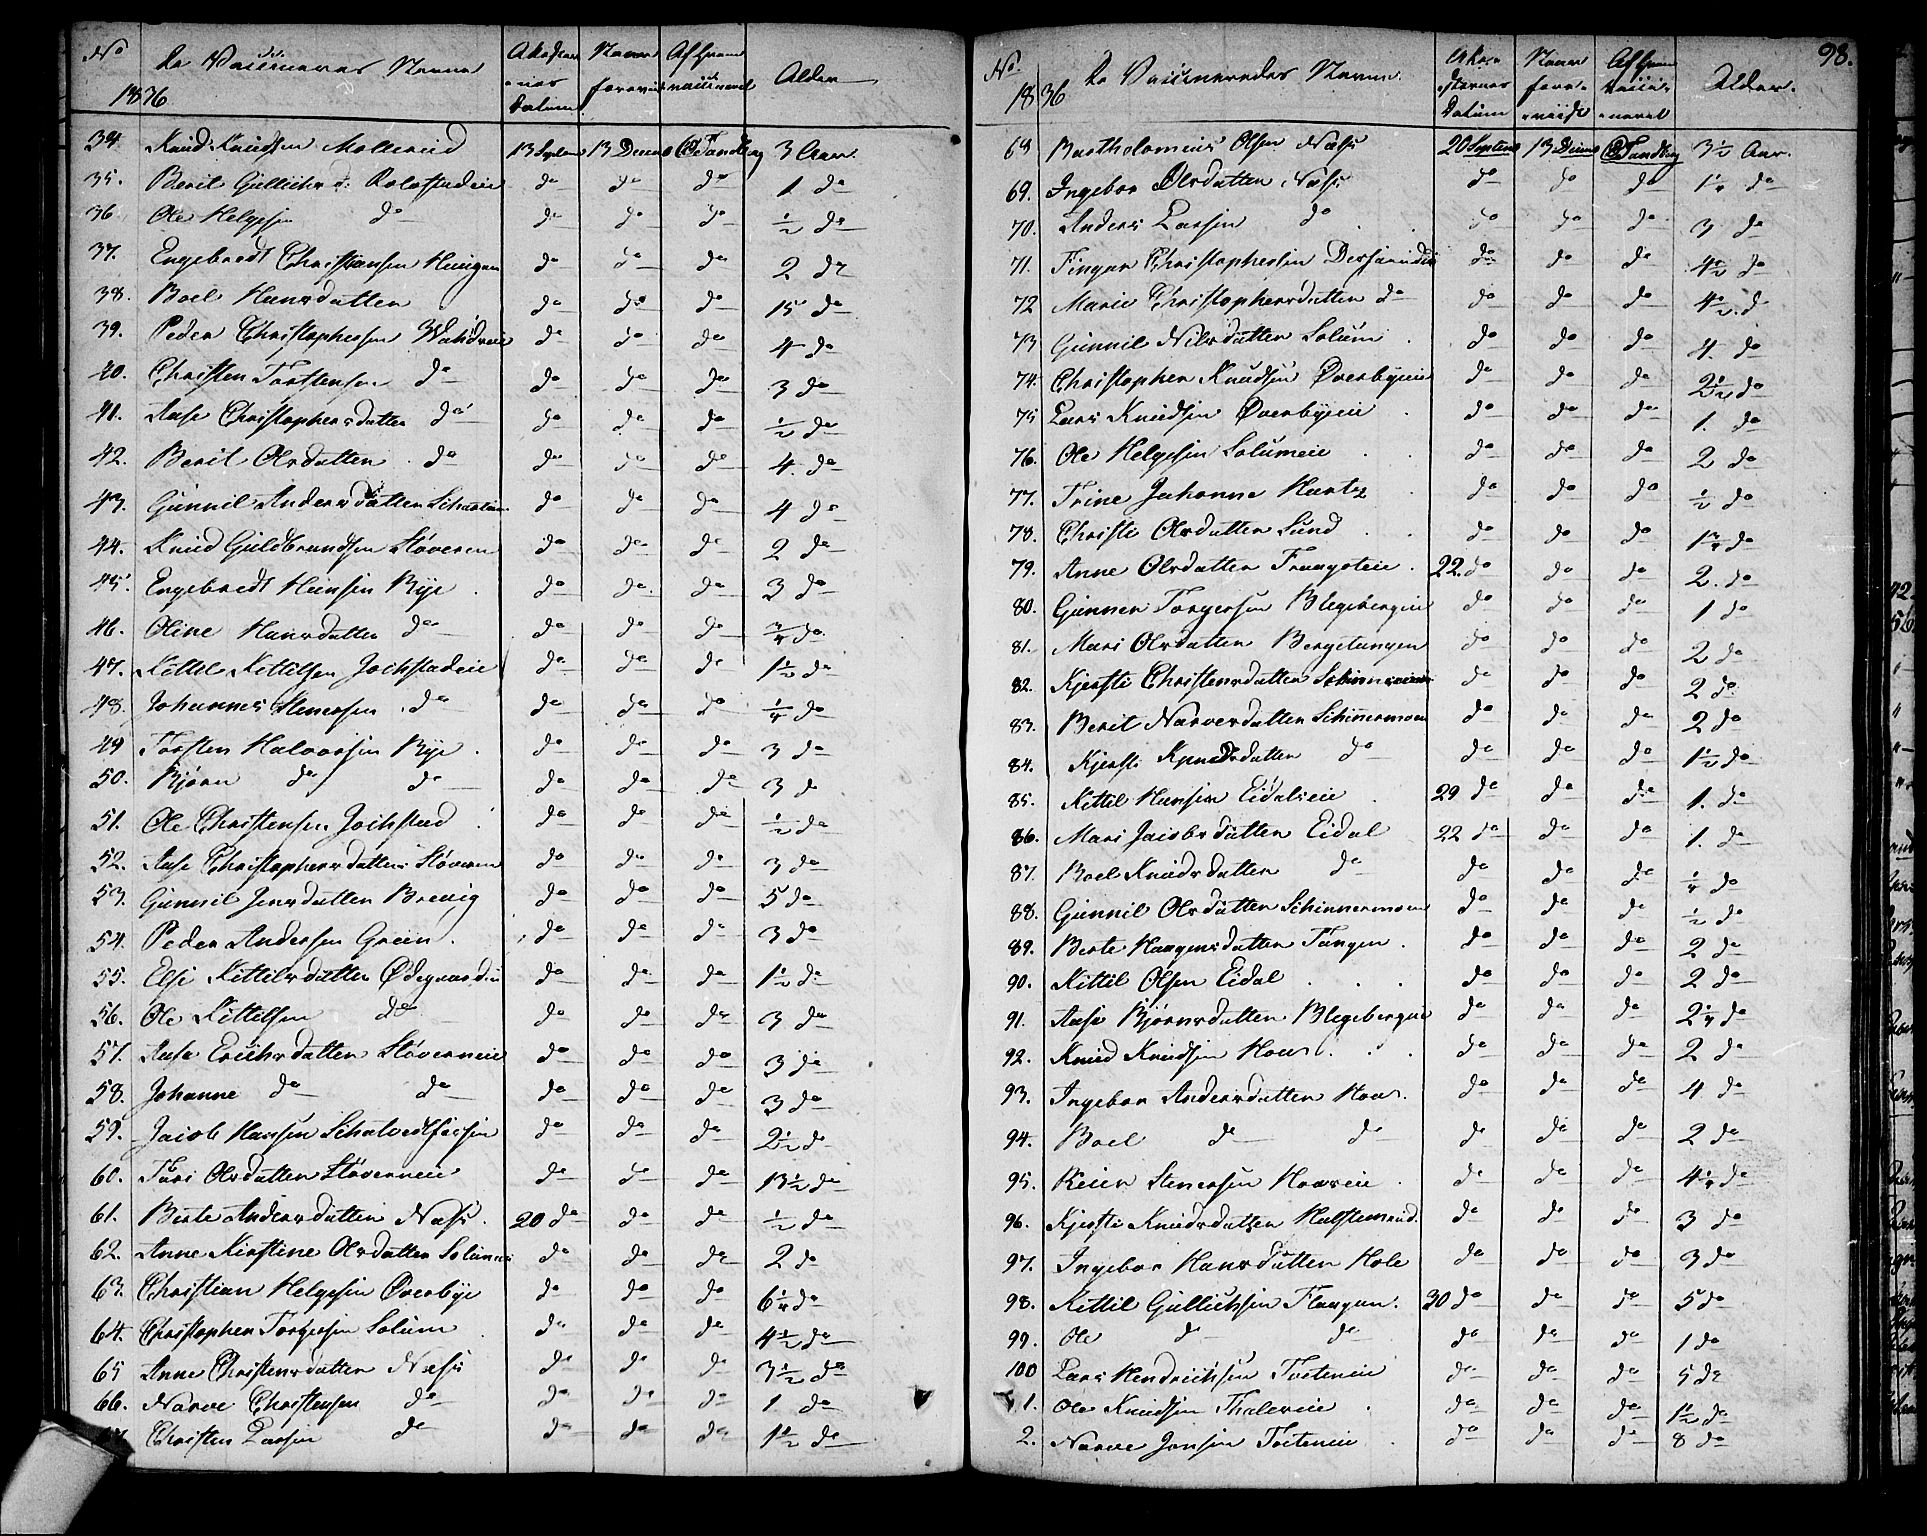 No
1836
De Vaccineredes Navne
Attesternes Datum
Naar forevist
Af hvem vaccineret
Alder
34. Knud Knudsen Mollerud 13 Septem 13 Decem O Tandberg 3 Aar
35. Berit Gullichsd. Rolvstadeie do do do 1 do
36. Ole Helgesen do do do do ½ do
37. Engebredt Christiansen Haugen do do do 2 do
38. Boel Hansdatter do do do 15 do
39. Peder Christophersen do do do 4 do
40. Christen Torstensen do do do do 3 do
41. Aase Christophersdatter do do do do ½ do
42. Berit Olsdatter do do do do 4 do
43. Gunnil Andersdatter do do do 4 do
44. Knud Guldbrandsen Støveren do do do 2 do
45. Engebredt Hansen Bye do do do 3 do
46. Oline Hansdatter do do do do ¾ do
47. Kittil Kittilsen Jochstadeie do do do 1½ do
48. Johannes Stenersen do do do do ¼ do
49 Torsten Halvorsen Bye do do do 3 do
50. Bjørn do do do do do 3 do
51. Ole Christensen Jochstad do do do ½ do
52. Aase Christophersdatter Støveren do do do 3 do
53. Gunnil Jensdatter Brevig do do do 5 do
54. Peder Andersen Green do do do 3 do
55. Elsi Kittilsdatter Ødegaard do do do 1½ do
56. Ole Kittilsen do do do do 3 do
57. Aase Erichsdatter Støverneie do do do 3 do
58. Johanne do do do do do 3 do
59. Jacob Hansen do do do 2½ do
60. Turi Olsdatter Støverneie do do do 13½ do
61. Birte Andersdatter Næss 20 do do do ½ do
62. Anne Kirstine Olsdatter do do do 2 do
63. Christian Helgesen Øverbye do do do 6¼ do
64. Christopher Torgersen Solum do do do 4½ do
65 Anne Christensdatter Næss do do do 3½ do
66. Narve Christensen do do do do 1 do
Christen Larsen do do do do 1½ do
98.
No
1836
De Vaccineredes Navne
Attesternes Datum
Naar forevist
Af hvem vaccineret
Alder.
68 Bartholomeus Olsen Næss 20 Septem 13 Decem O Tandberg 3½ Aar.
69. Ingebor Olsdatter Næss do do do 1¼ do
70. Anders Larsen do do do do 3 do
71. Fingar Christophersen do do do 4½ do
72 Marie Christophersdatter do do do do 4½ do
73 Gunnil Nilsdatter Solum do do do 4. do
74. Christopher Knudsen Øverbyeie do do do 2½ do
75 Lars Knudsen Øverbyeie do do do 1. do
76. Ole Helgesen Solumeie do do do 2 do
77. Trine Johanne Hartz do do do ½ do
78. Christi Olsdatter Lund do do do 1¾ do
79. Anne Olsdatter 22. do do do 2. do
80. Gunner Torgersen Blegebergeie do do do 1 do
81. Mari Olsdatter Bergetangen do do do 2 do
82. Kjersti Christensdatter do do do 2 do
83. Berit Narvesdatter Schinnermoen do do do 2 do
84. Kjersti Knudsdatter do do do do 1½ do
85. Kittil Hansen Eidaleie 29 do do do 1. do
86. Mari Jacobsdatter Eidal 22 do do do 1. do
87. Boel Knudsdatter do do do do ¼ do
88. Gunnil Olsdatter Schinnermoen do do do ½ do
89. Berte Haagensdatter Tangen do do do 2 do
90. Kittil Olsen Eidal do do do 2 do
91. Aase Bjørnsdatter Blegebergeie do do do 2¼ do
92. Knud Knudsen Hovs do do do 2 do
93. Ingebor Andersdatter Hovs. do do do 4 do
94. Boel do do do do do 2 do
95. Reier Stenersen Hovseie do do do 4¼ do
96. Kjersti Knudsdatter Halstensrud. do do do 3 do
97. Ingebor Hansdatter Hole do do do 3 do
98. Kittil Gullichsen Flaugen. 30 do do do 5 do
99. Ole do do do do do 1 do
100 Lars Hendrichsen Tveteneie do do do 5 do
1. Ole Knudsen Thaleneie do do do 1½ do
2. Narve Jonsen Tveteneie do do do 8 do